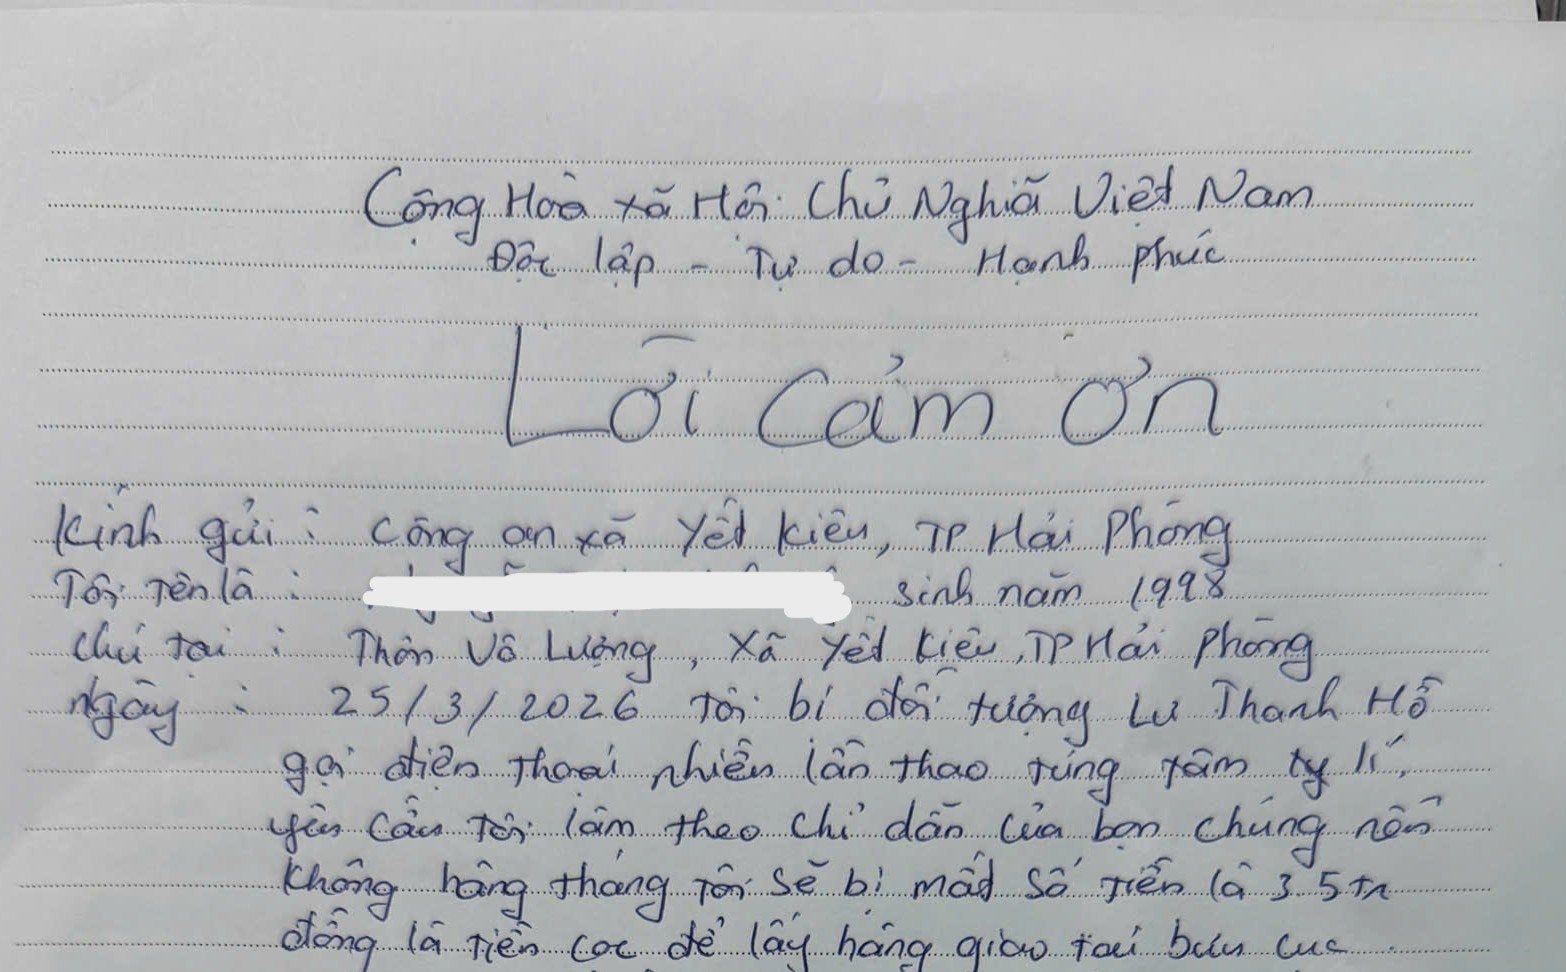 Cộng Hoà xã Hội Chủ Nghiã Việt Nam
Độc lập - Tự do - Hạnh phúc
Lời Cảm ơn
Kính gửi : Công an xã Yết Kiêu, TP Hải Phòng
Tôi Tên là : sinh năm 1998
Chú tại : Thôn Vô Lượng, Xã Yết Kiêu, TP Hải Phòng
Ngày : 25/3/2026 Tôi bị đối tượng Lư Thanh Hổ
gọi điện thoại nhiều lần thao túng tâm ty lí,
yêu cầu tôi làm theo chỉ dẫn của bọn chúng nếu
không hàng tháng tôi sẽ bị mất số tiền là 3.5tr
đồng là tiền cọc để lấy hàng giao tại bưu cục